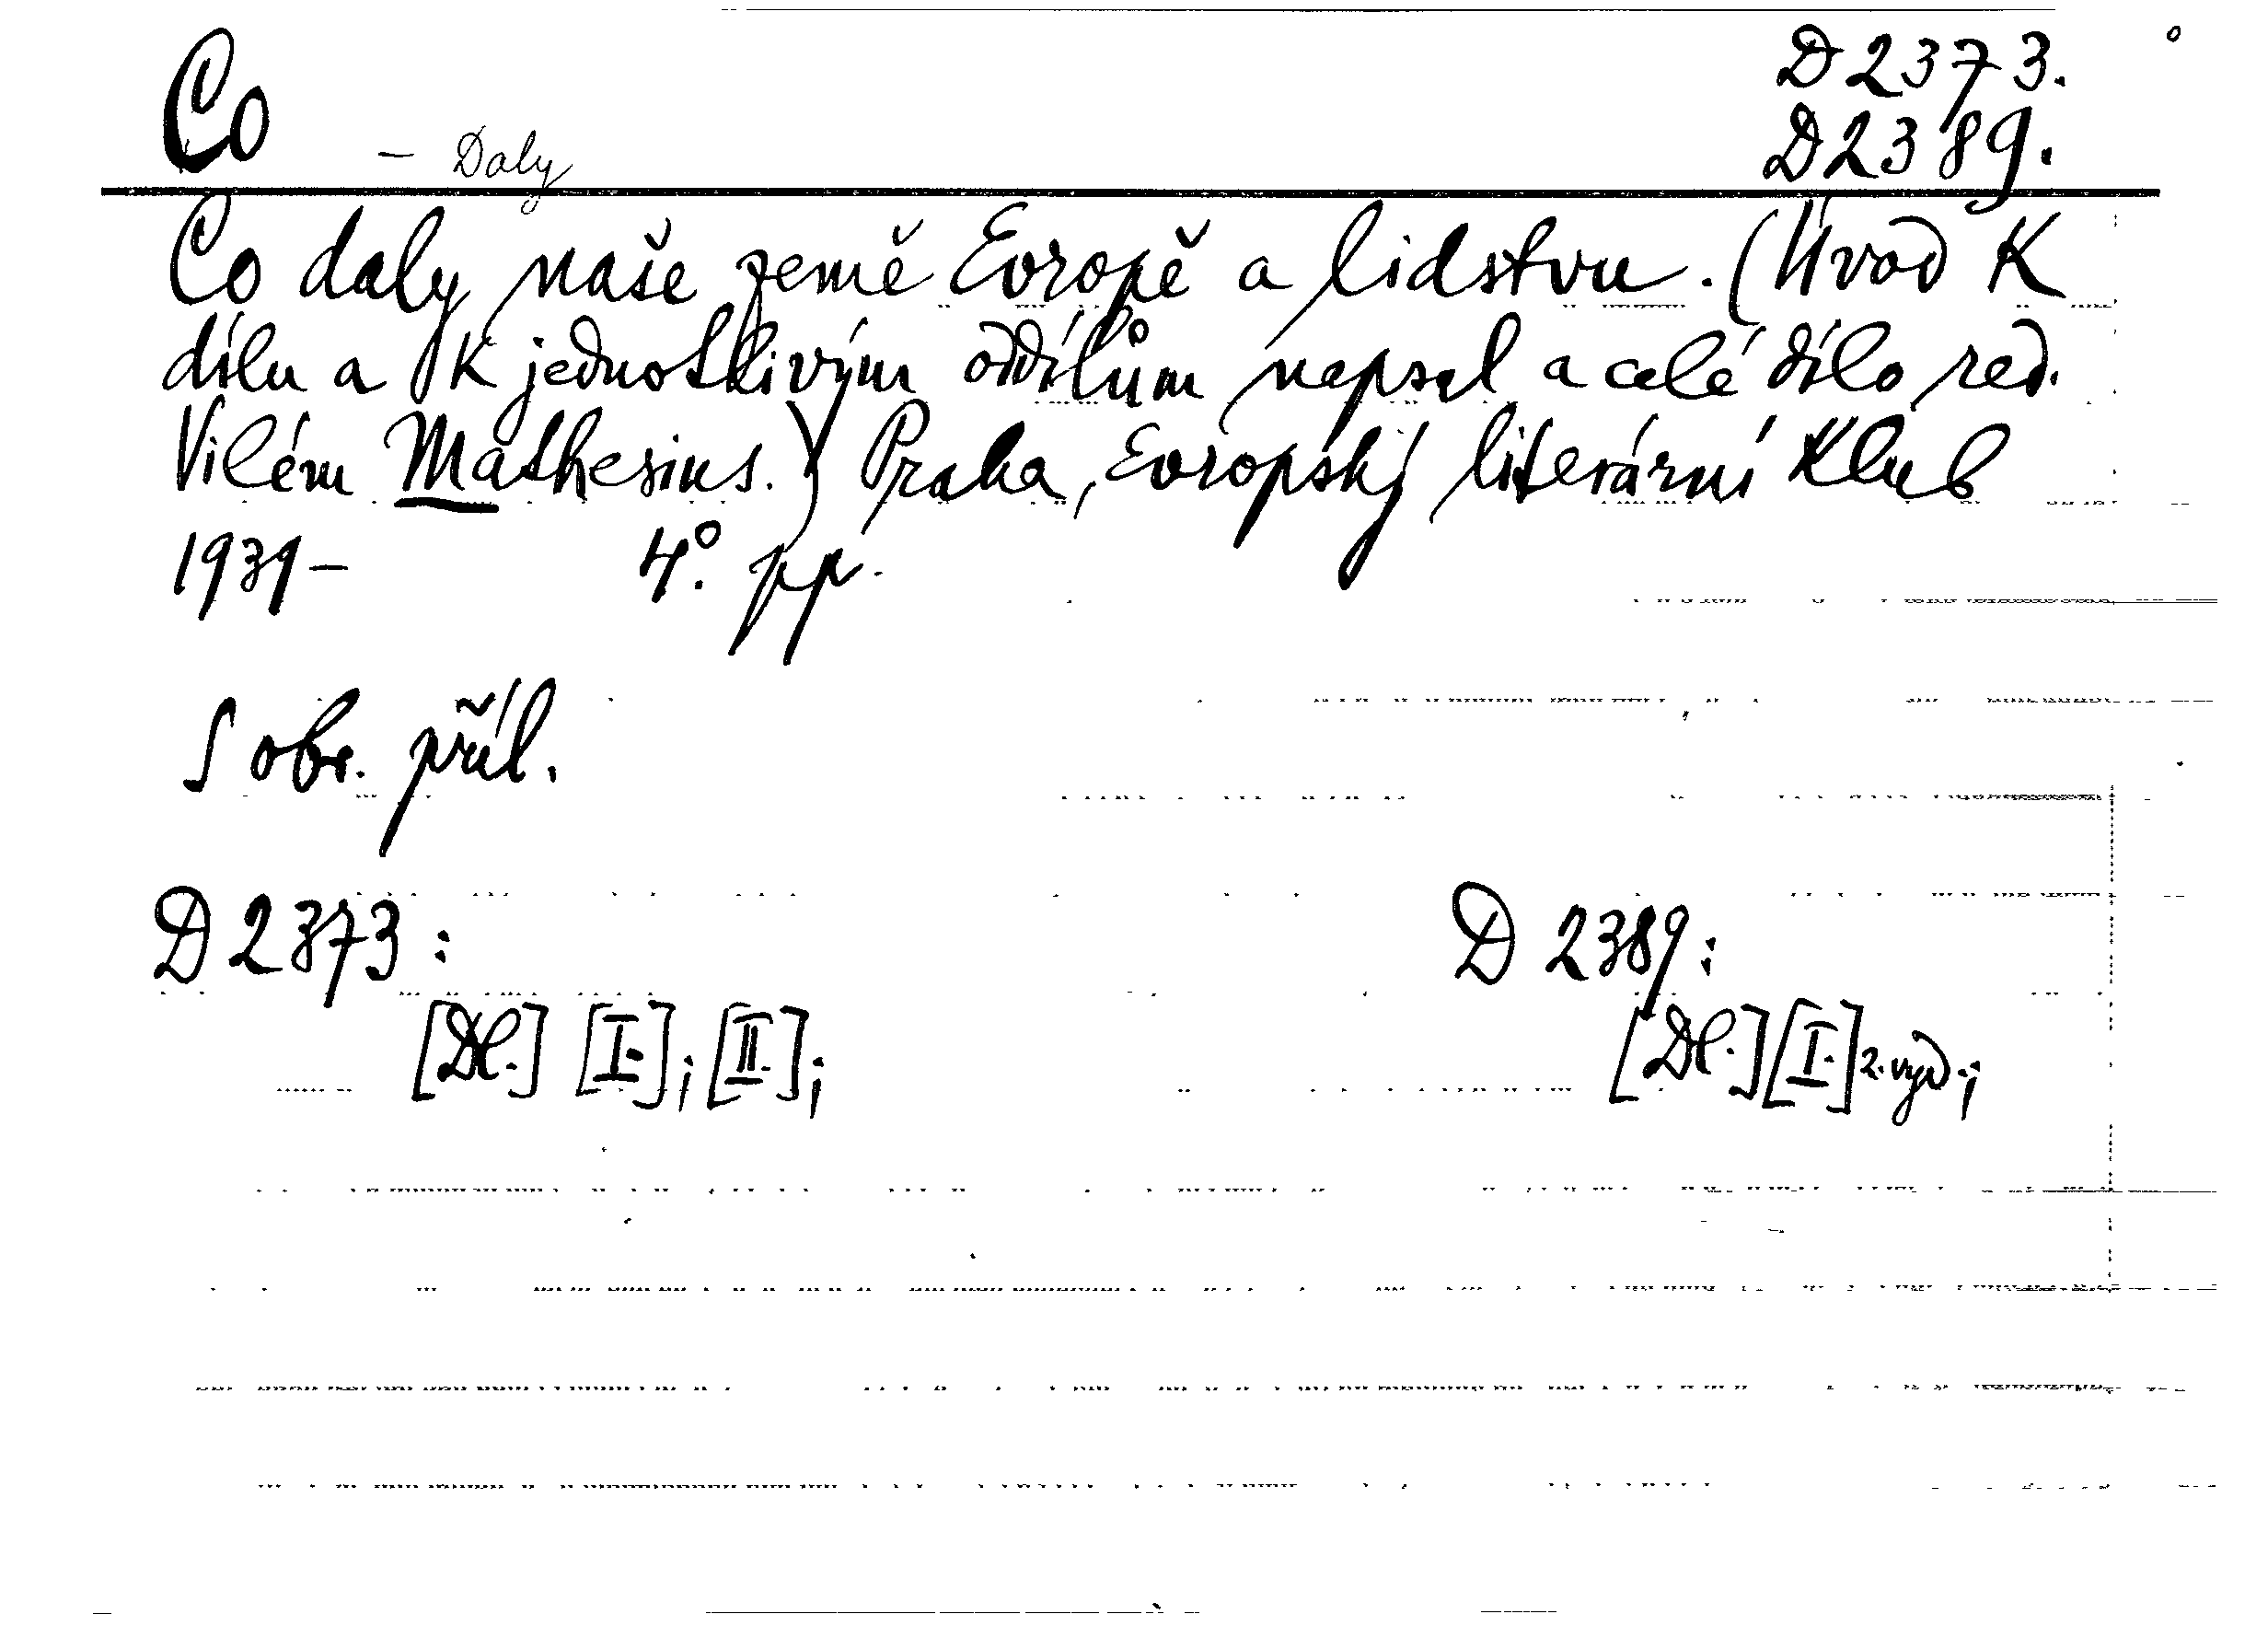 Co - Daly D 2373.
D 2389.
Co daly naše země Evropě a lidstvu. (Úvod k
dílu a k jednotlivým oddílům napsal a celé dílo red.
Vilém Mathesius.) Praha, Evropský literární klub
1939- 4°. pp.
S obr. příl.
D 2373: D 2389:
[Dl.] [I.]; [II.]; [Dl.] [I.] 2. vyd.;